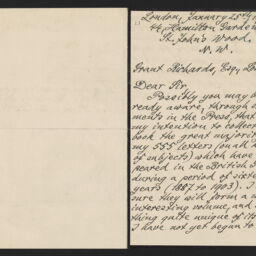 London, January 25th
Hamilton Gardens
St. John's Wood,
N. W.
Grant Richards, Esq.,
Dear Sir,
Possibly you may be
ready aware, through
ments in the Press, that
my intention to collect
book the great majority
my 555 letters (on all
of subjects) which have
peared in the British
during a period of sixteen
years (1887 to 1903). I
sure they will form a
interesting volume, and
thing quite unique of its
I have not yet begun to